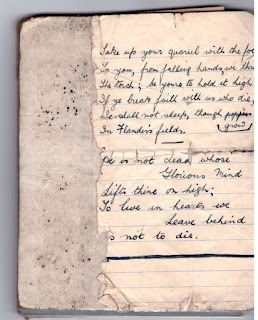 Take up your quarrel with the foe
To you, from falling hands, we thr
The torch; be yours to hold at high
If ye break faith with us who die,
We shall not sleep, though poppies
grow
In Flanders fields.
He is not dead whose
Glorious Mind
Lifts thine on high;
To live in hearts we
Leave behind
Is not to die.